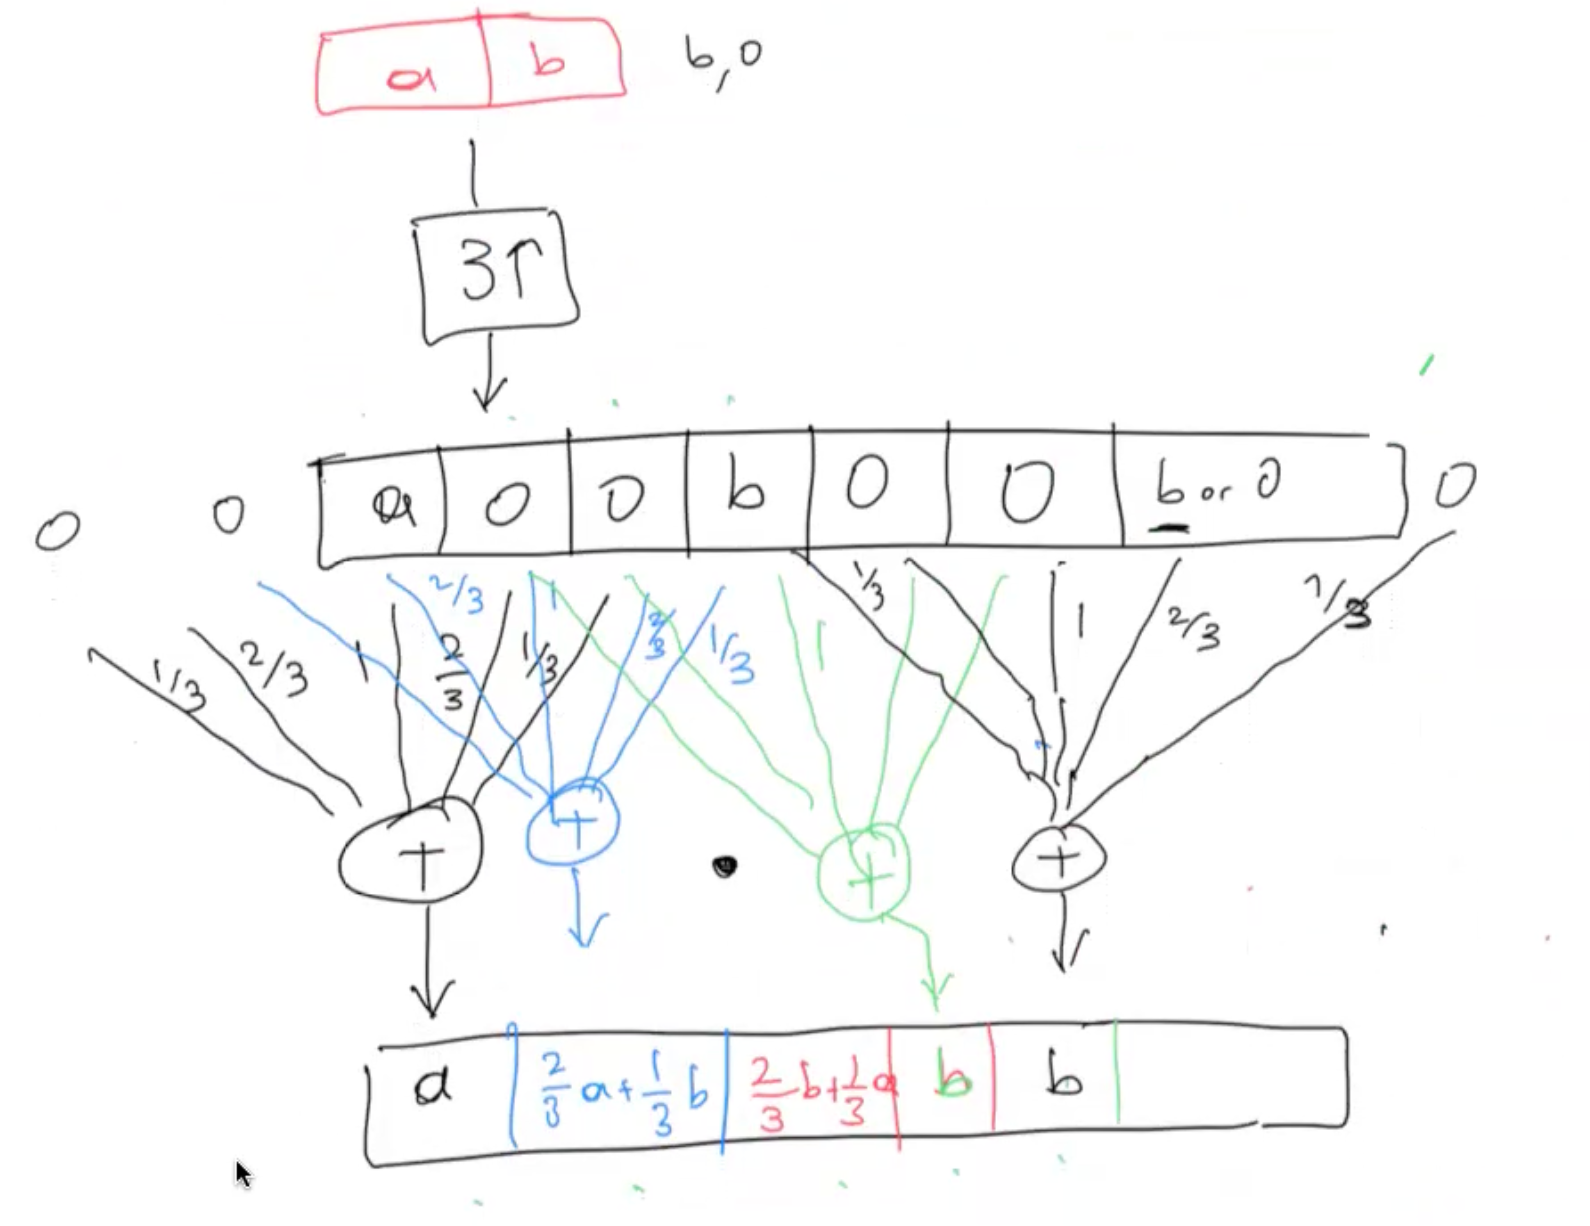 a b b,0
3↑
0 0 a 0 0 b 0 0 b or 0 0
1/3 2/3 1 2/3 2/3 1/3 1 2/3 1/3 1 1/3 1 2/3 1/3
+ + + +
a 2/3 a+1/3 b 2/3 b+1/3 a b b